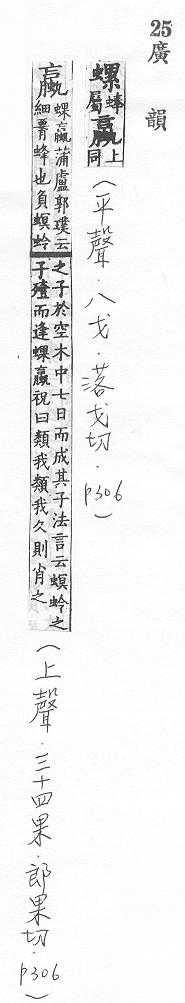 25廣韻
螺蜯屬蠃上同(平聲．八戈．落戈切．p306)
蠃蜾蠃蒲盧郭璞云細蜂也負螟蛉之子於空木中七日而成其子法言云螟蛉之子殪而逢蜾蠃祝曰類我類我久則肖之(上聲．三十四果．郎果切．p306)